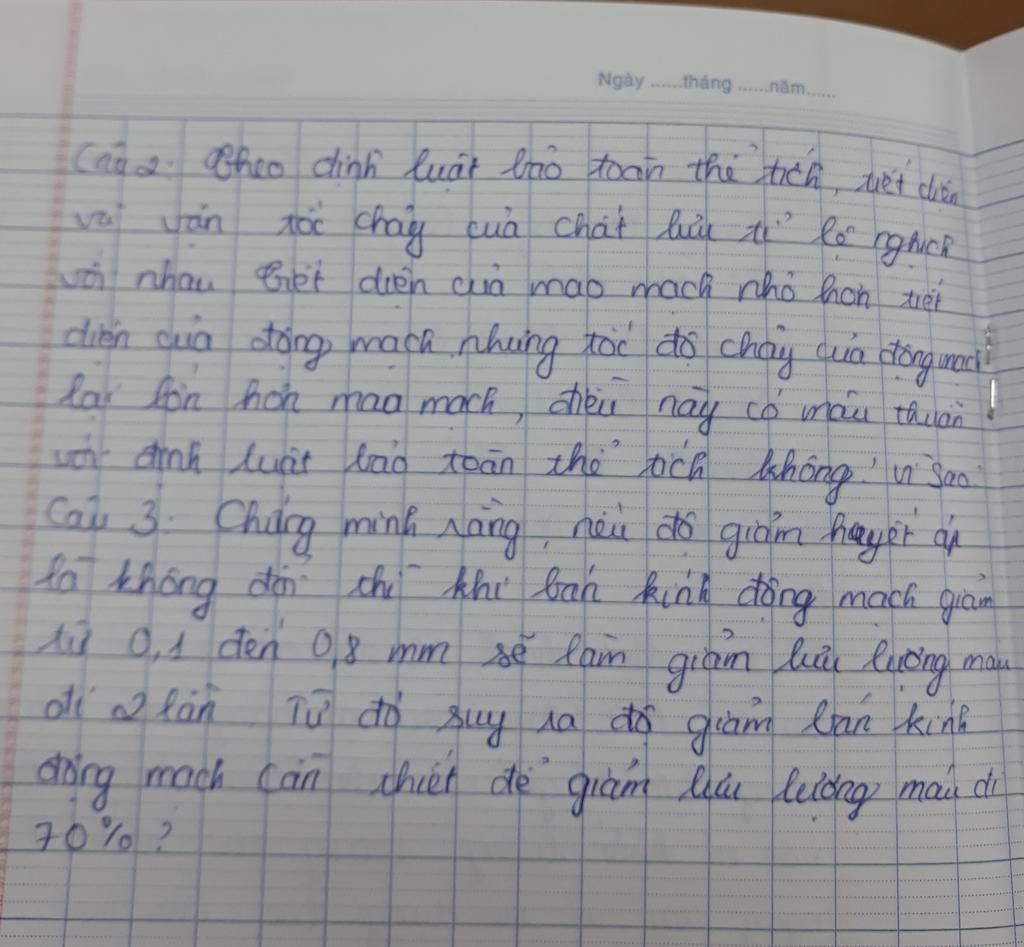 Ngày ......tháng ......năm......
Câu 2. Theo định luật bảo toàn thể tích, tiết diện
và vận tốc chảy của chất lưu tỉ lệ nghịch
với nhau. Tiết diện của mao mạch nhỏ hơn tiết
diện của động mạch nhưng tốc độ chảy của động mạch
lại lớn hơn mao mạch, điều này có mâu thuẫn
với định luật bảo toàn thể tích không? vì sao?
Câu 3. Chứng minh rằng, nếu độ giảm huyết áp
là không đổi thì khi bán kính động mạch giảm
từ 0,1 đến 0,8 mm sẽ làm giảm lưu lượng máu
đi 2 lần. Từ đó suy ra độ giảm bán kính
động mạch cần thiết để giảm lưu lượng máu đi
70% ?